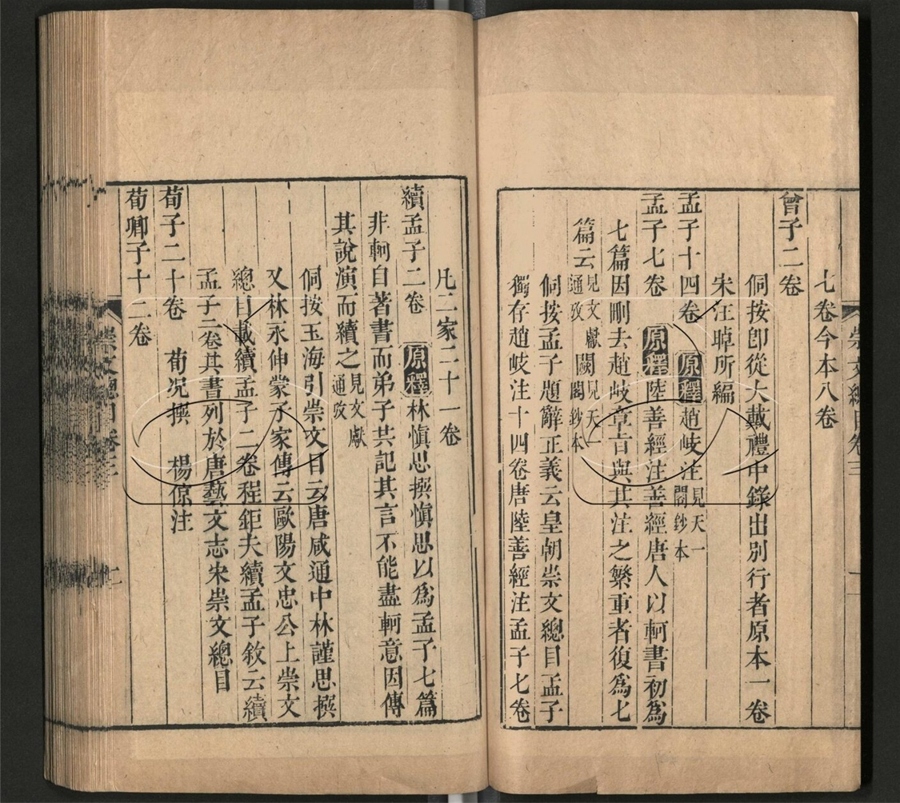 七卷今本八卷
曾子二卷
侗按卽從大戴禮中錄出別行者原本一卷
宋汪晫所編
孟子十四卷 原釋 趙岐注 見天一閣鈔本
孟子七卷 原釋 陸善經注善經唐人以軻書初爲
七篇因刪去趙岐章旨與其注之繁重者復爲七
篇云 見文獻通攷 闕 見天一閣鈔本
侗按孟子題辭正義云皇朝崇文總目孟子
獨存趙岐注十四卷唐陸善經注孟子七卷
凡二家二十一卷
續孟子二卷 原釋 林愼思撰愼思以爲孟子七篇
非軻自著書而弟子共記其言不能盡軻意因傳
其說演而續之 見文獻通攷
侗按玉海引崇文目云唐咸通中林謹思撰
又林永伸蒙子家傳云歐陽文忠公上崇文
總目載續孟子二卷程鉅夫續孟子敘云續
孟子二卷其書列於唐藝文志宋崇文總目
荀子二十卷 荀況撰 楊倞注
荀卿子十二卷